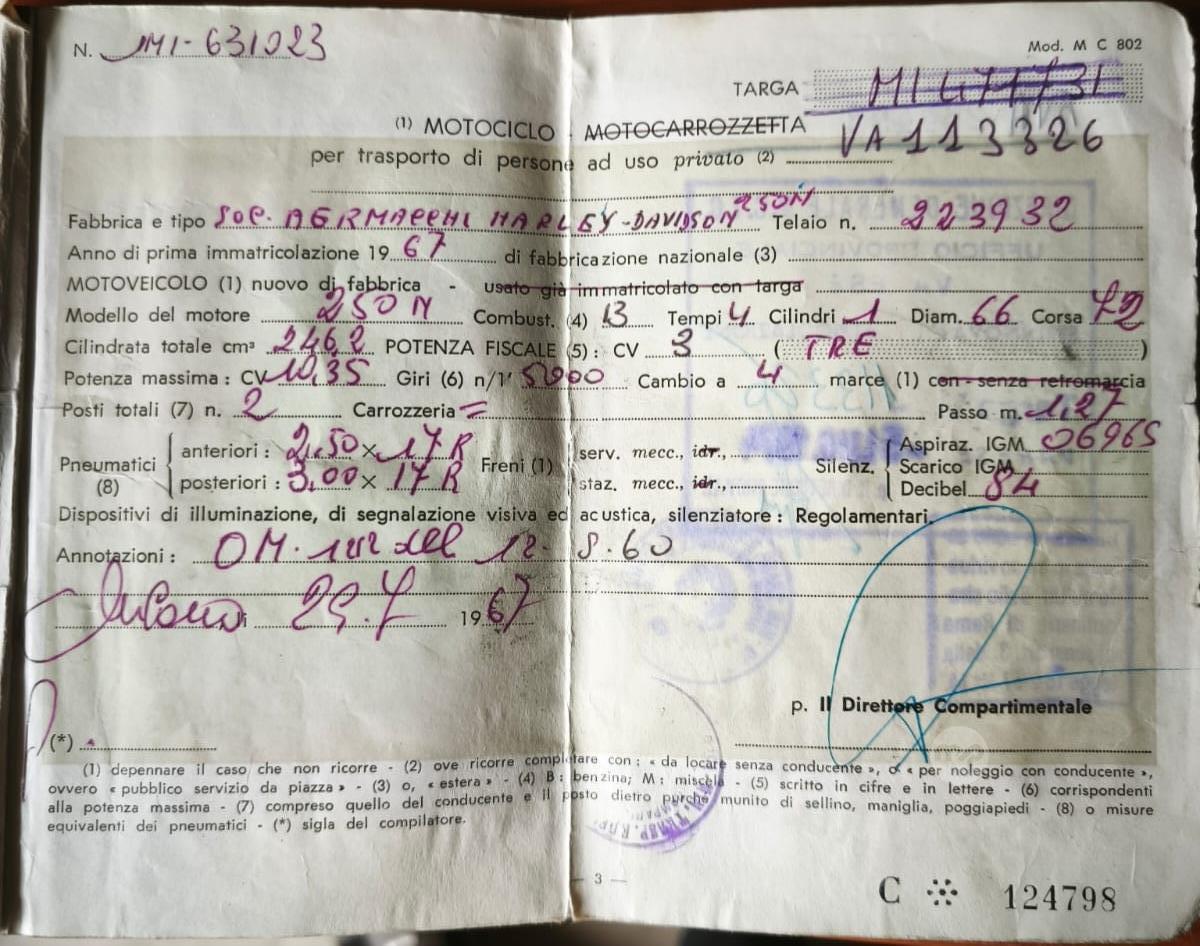 N. MI-631023
Mod. M C 802
TARGA MI 471731
VA 113326
(1) MOTOCICLO - MOTOCARROZZETTA
per trasporto di persone ad uso privato (2)
Fabbrica e tipo Soc. AERMACCHI HARLEY-DAVIDSON 250N Telaio n. 223932
Anno di prima immatricolazione 19 67 di fabbricazione nazionale (3)
MOTOVEICOLO (1) nuovo di fabbrica - usato già immatricolato con targa
Modello del motore 250 N Combust. (4) B Tempi 4 Cilindri 1 Diam. 66 Corsa 72
Cilindrata totale cm³ 246,2 POTENZA FISCALE (5) : CV 3 ( TRE )
Potenza massima : CV 10,35 Giri (6) n/1' 5000 Cambio a 4 marce (1) con - senza retromarcia
Posti totali (7) n. 2 Carrozzeria = Passo m. 1,27
Pneumatici (8) anteriori : 2,50 × 17 R Freni (1) serv. mecc., idr., Silenz. Aspiraz. IGM 06965
Scarico IGM
posteriori : 3,00 × 17 R staz. mecc., idr., Decibel 84
Dispositivi di illuminazione, di segnalazione visiva ed acustica, silenziatore : Regolamentari.
Annotazioni : OM. del 12. 8. 60
Milano 29.7 1967
p. Il Direttore Compartimentale
(*)
(1) depennare il caso che non ricorre - (2) ove ricorre completare con : « da locare senza conducente », o « per noleggio con conducente »,
ovvero « pubblico servizio da piazza » - (3) o, « estera » - (4) B : benzina; M : miscela - (5) scritto in cifre e in lettere - (6) corrispondenti
alla potenza massima - (7) compreso quello del conducente e il posto dietro purchè munito di sellino, maniglia, poggiapiedi - (8) o misure
equivalenti dei pneumatici - (*) sigla del compilatore.
— 3 —
C 124798